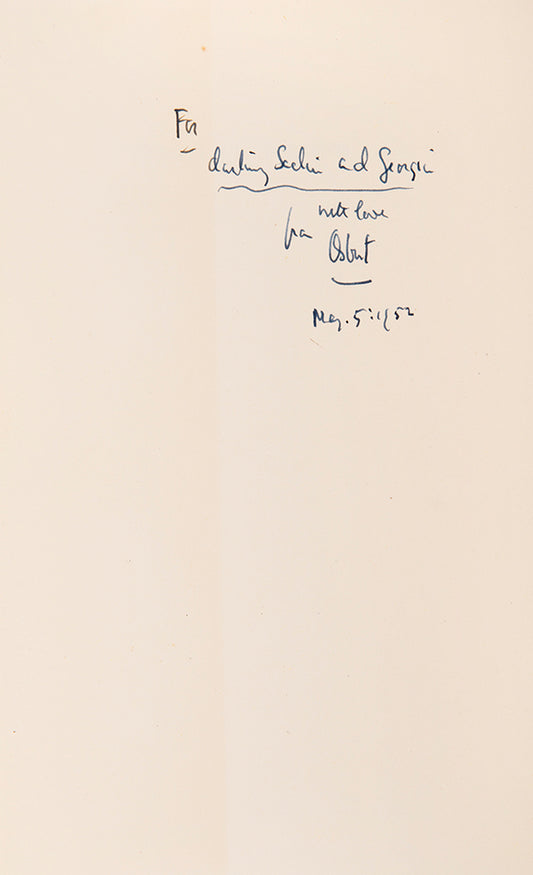 For
darling Sachie and Georgia
with love
from Osbert
May. 5: 1952